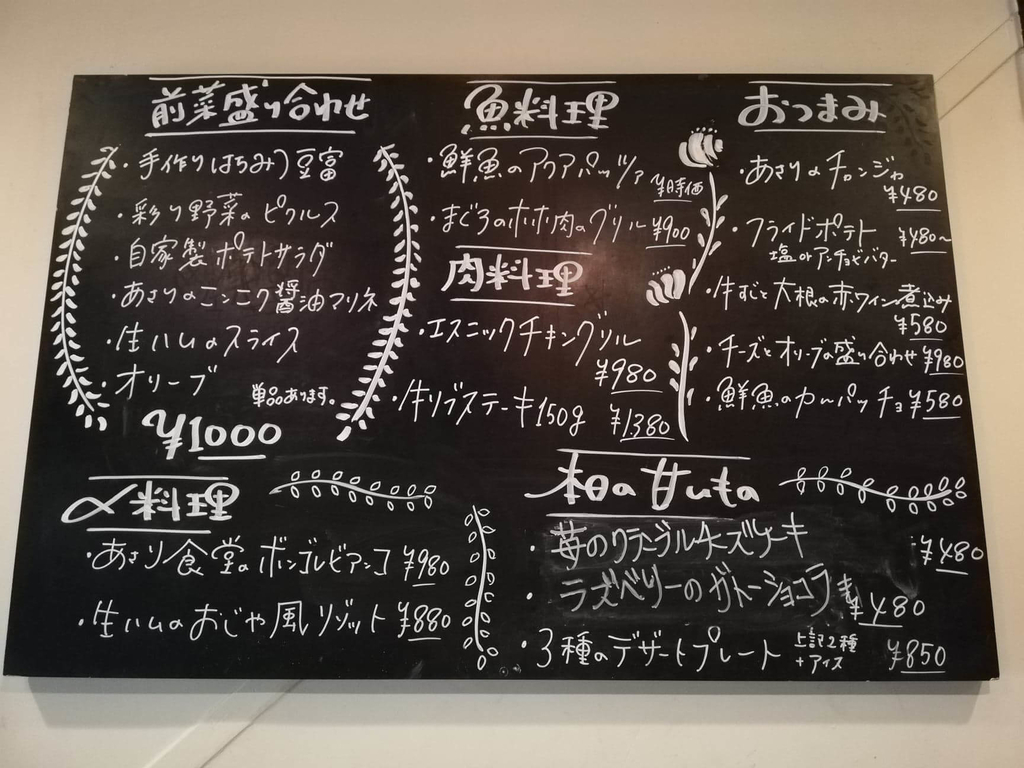 前菜盛り合わせ
・手作りはちみつ豆富
・彩り野菜のピクルス
・自家製ポテトサラダ
・あさりのニンニク醤油マリネ
・生ハムのスライス
・オリーブ
単品あります。
¥1000
〆料理
・あさり食堂のボンゴレビアンコ ¥980
・生ハムのおじや風リゾット ¥880
魚料理
・鮮魚のアクアパッツァ ¥時価
・まぐろのホホ肉のグリル ¥900
肉料理
・エスニックチキングリル
¥980
・牛リブステーキ150g ¥1380
おつまみ
・あさりのチャンジャ
¥480
・フライドポテト ¥480~
塩orアンチョビバター
・牛すじと大根の赤ワイン煮込み
¥580
・チーズとオリーブの盛り合わせ ¥980
・鮮魚のカルパッチョ ¥580
本日の甘いもの
・苺のクラシカルチーズケーキ ¥480
・ラズベリーのガトーショコラ ¥480
・3種のデザートプレート 上記2種
+アイス ¥850